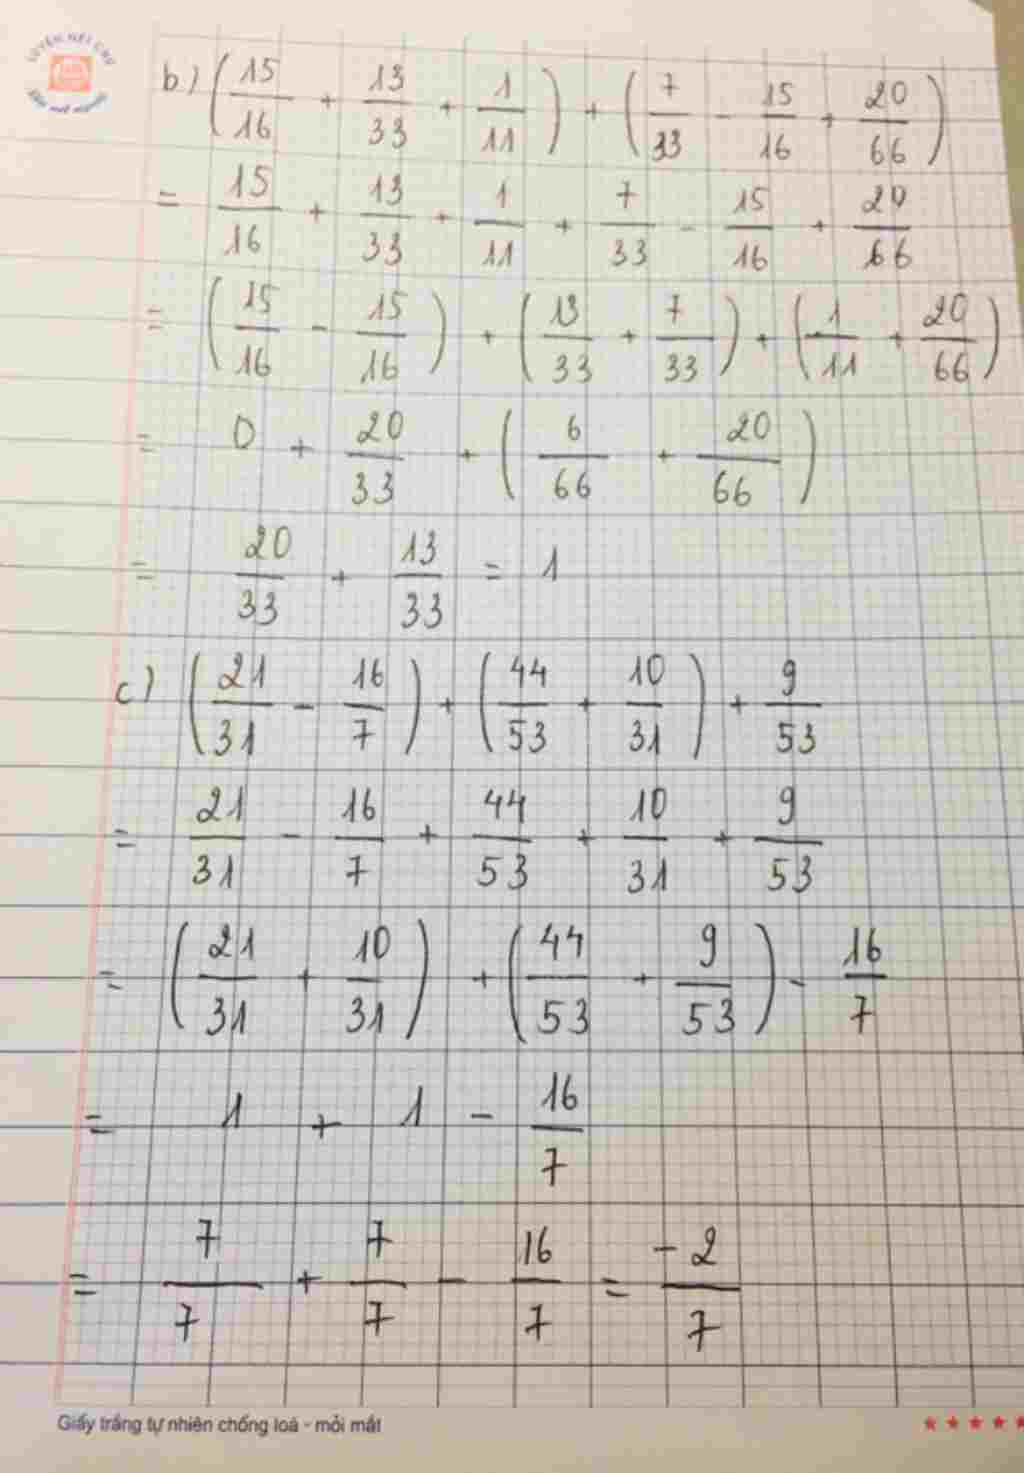 LUYỆN NÉT CHỮ
b) (15/16 + 13/33 + 1/11) + (7/33 - 15/16 + 20/66)
= 15/16 + 13/33 + 1/11 + 7/33 - 15/16 + 20/66
= (15/16 - 15/16) + (13/33 + 7/33) + (1/11 + 20/66)
= 0 + 20/33 + (6/66 + 20/66)
= 20/33 + 13/33 = 1
c) (21/31 - 16/7) + (44/53 + 10/31) + 9/53
= 21/31 - 16/7 + 44/53 + 10/31 + 9/53
= (21/31 + 10/31) + (44/53 + 9/53) - 16/7
= 1 + 1 - 16/7
= 7/7 + 7/7 - 16/7 = -2/7
Giấy trắng tự nhiên chống loá - mỏi mắt